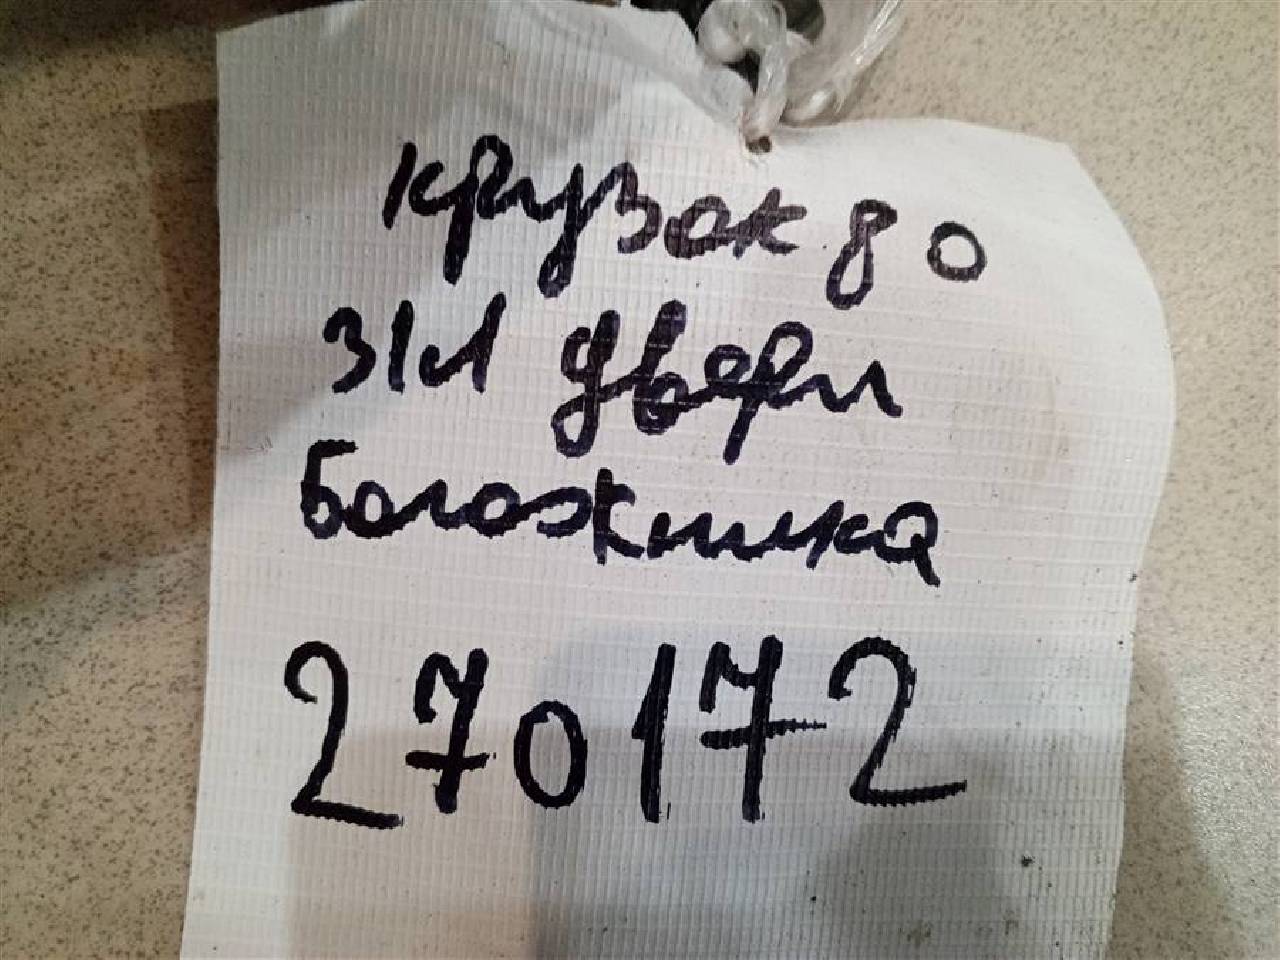 крузак 80
з/л двери
Боложинка
270172